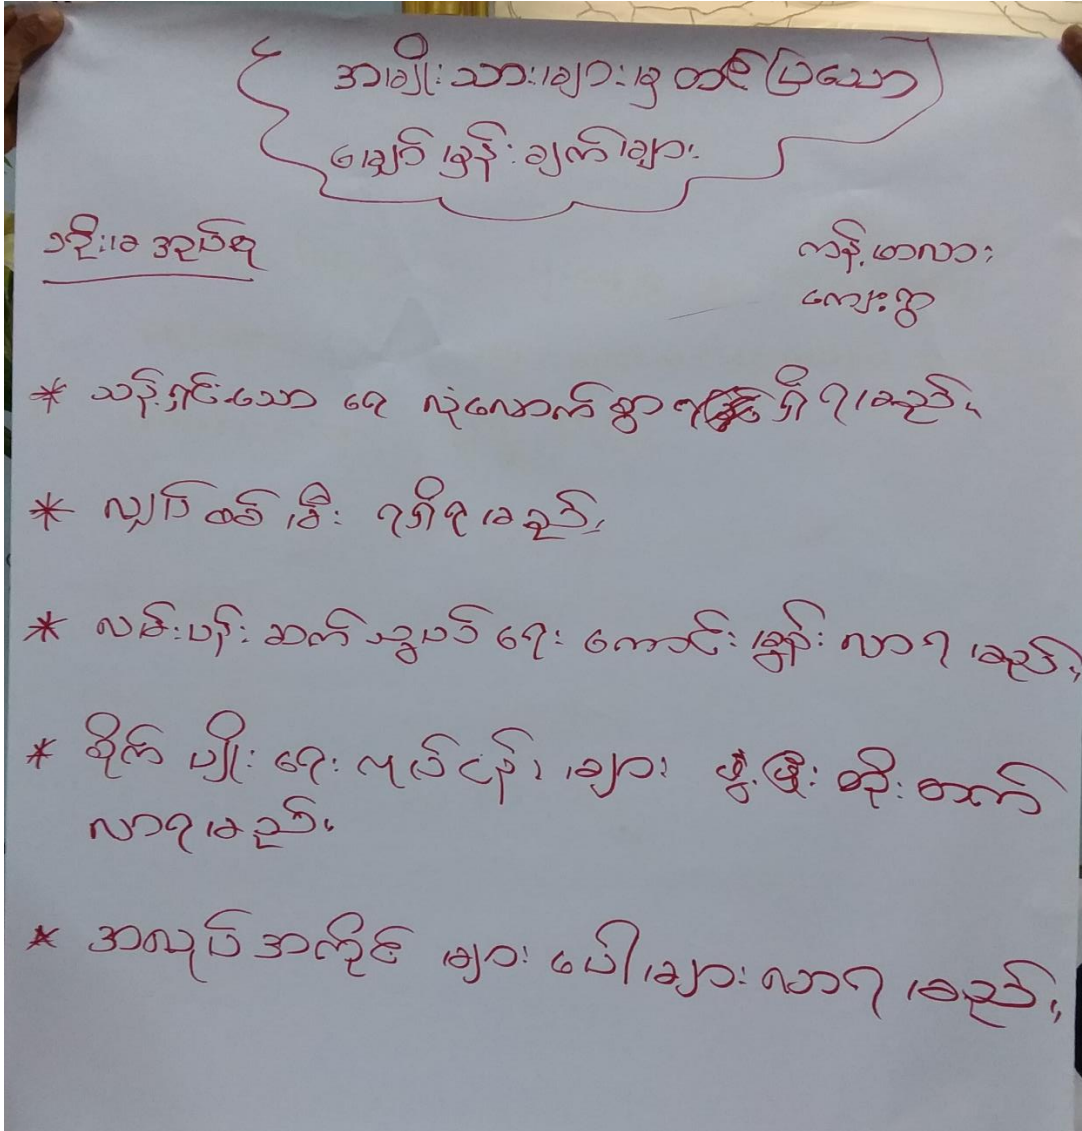 အမျိုးသားများမှ တင်ပြသော
မျှော်မှန်းချက်များ
ဒိုးမ အုပ်စု
ကန့်ဖာလာ
ကျေးရွာ
* သန့်ရှင်းသော ရေ လုံလောက်စွာ ရရှိရမည်။
* လျှပ်စစ်မီး ရရှိရမည်။
* လမ်းပန်း ဆက်သွယ်ရေး ကောင်းမွန်လာရမည်။
* စိုက်ပျိုးရေး လုပ်ငန်းများ ဖွံ့ဖြိုးတိုးတက်
လာရမည်။
* အလုပ်အကိုင်များ ပေါများလာရမည်။